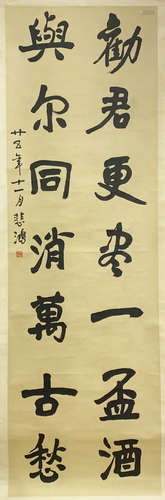 勸君更盡一盃酒
與尔同消萬古愁
廿五年十一月
悲鴻